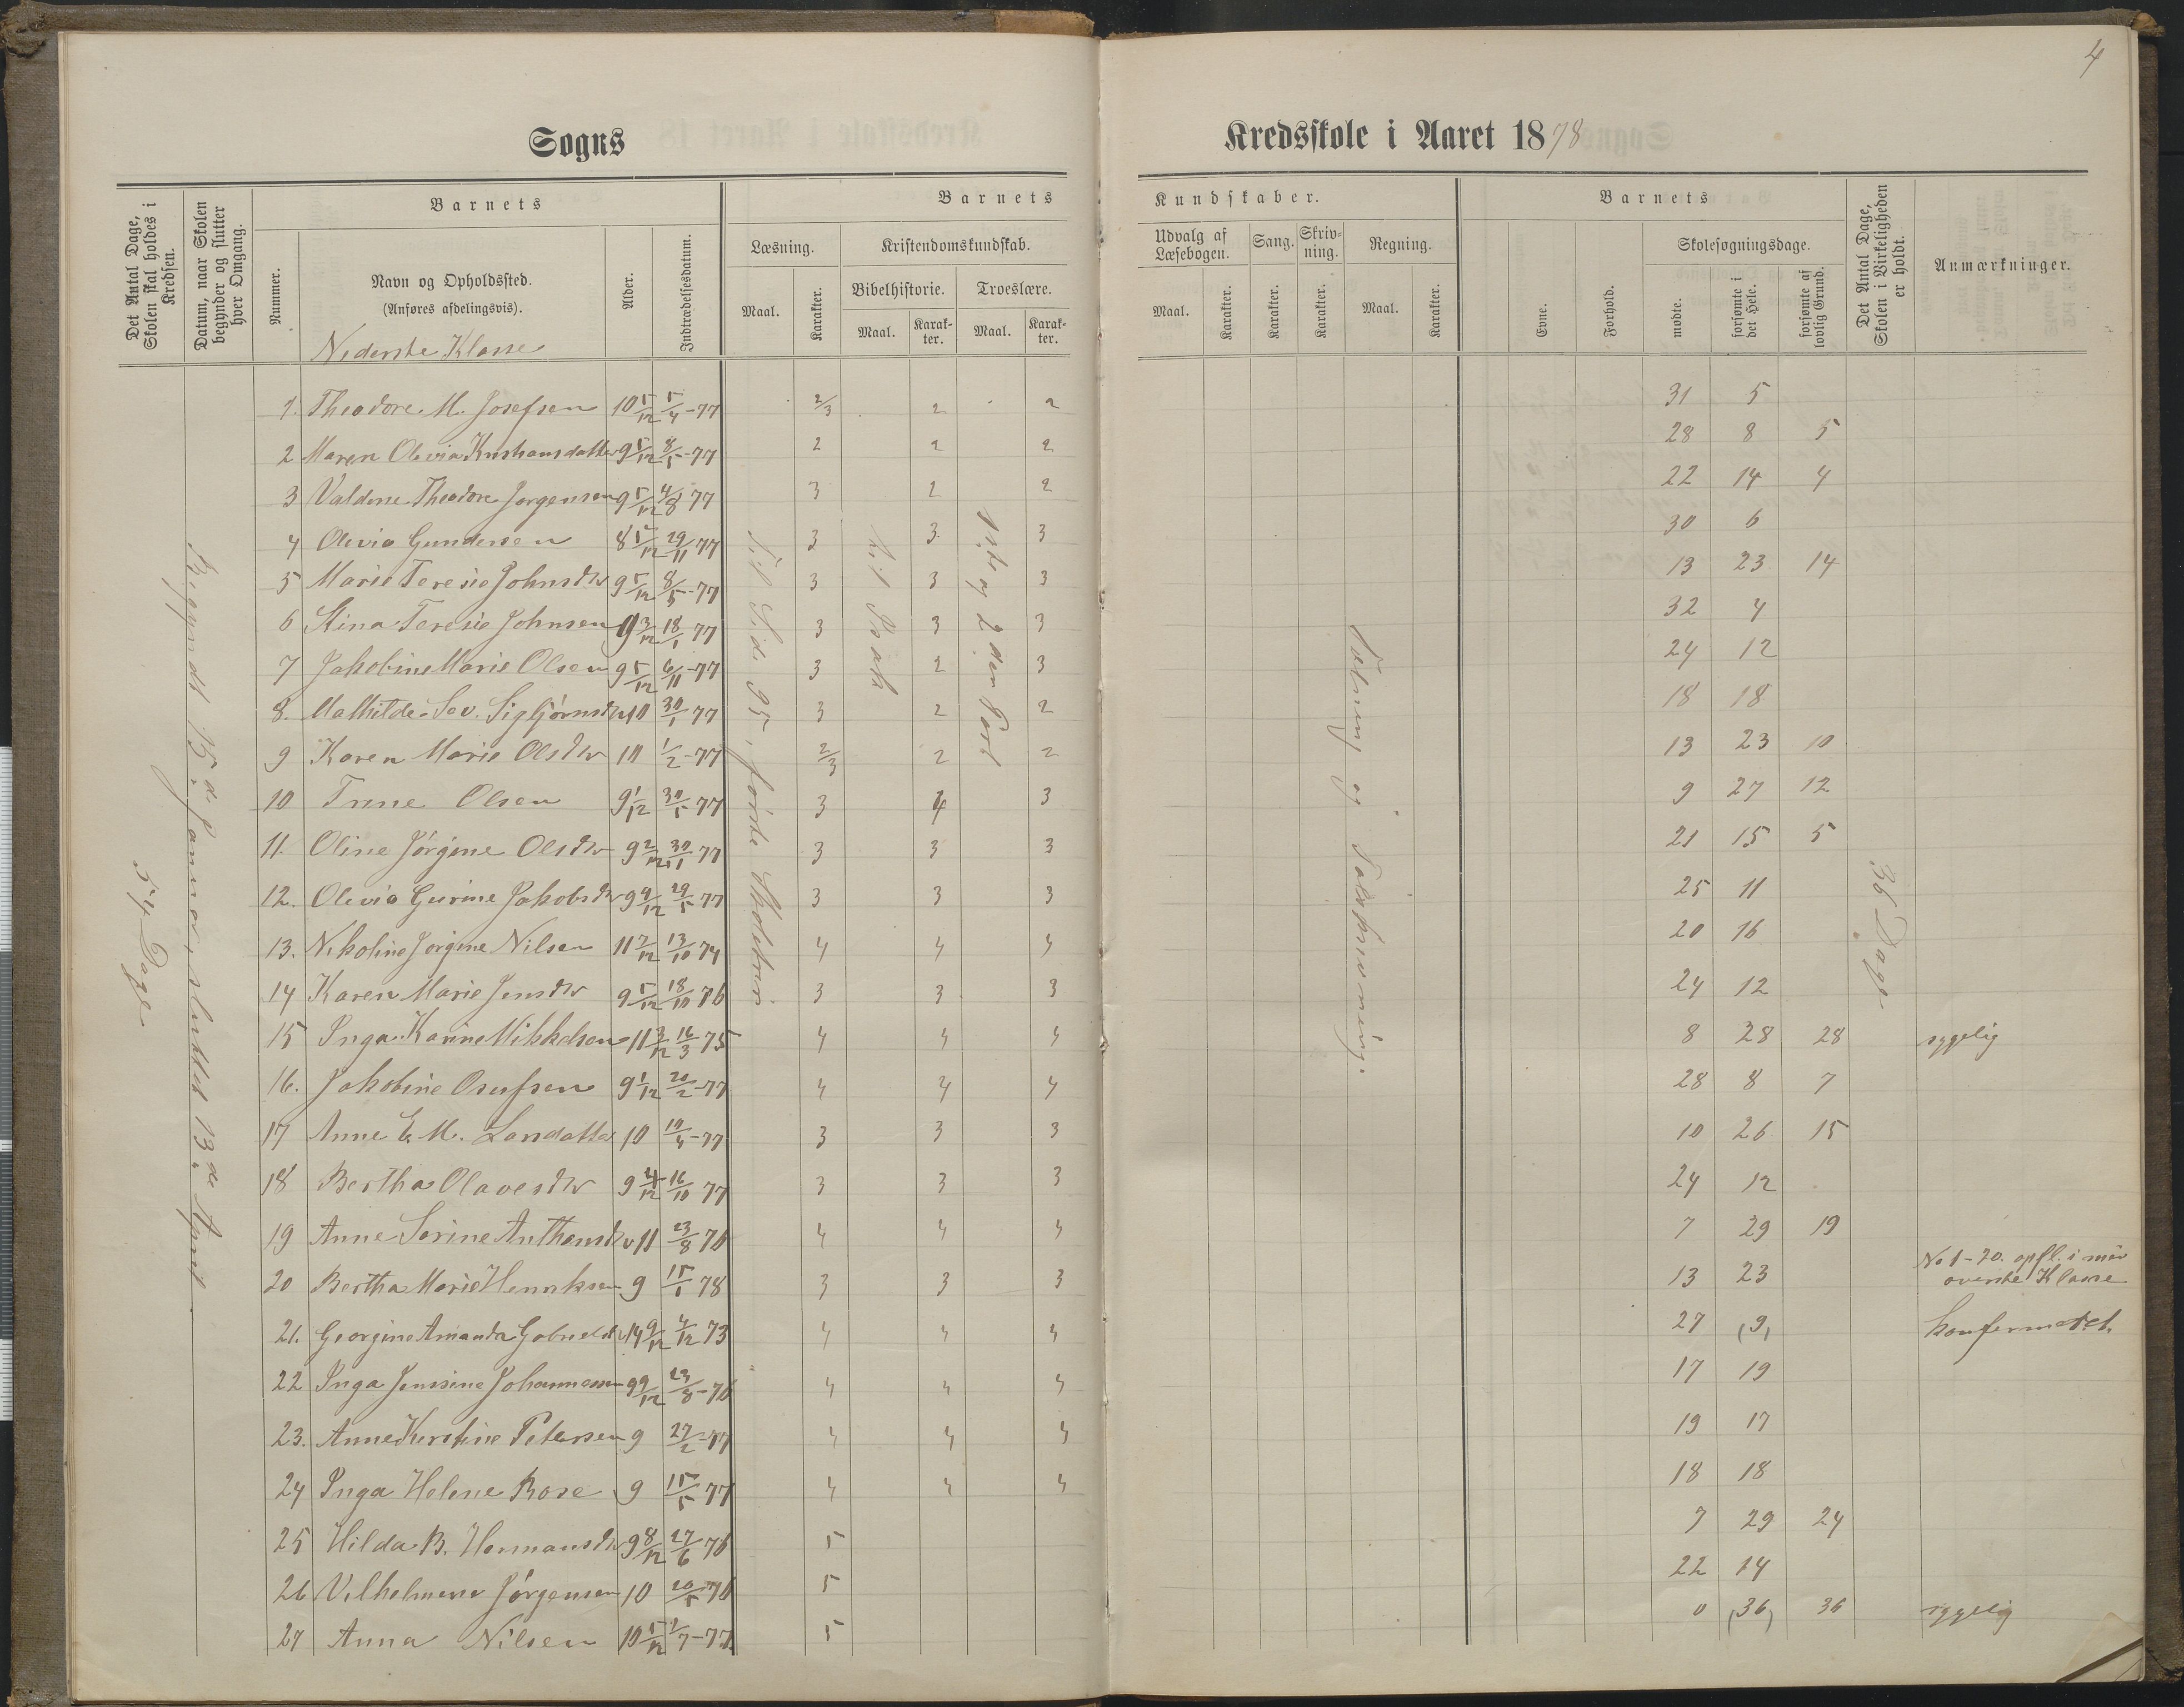 4
Sogns
Kredsskole i Aaret 1878
Det Antal Dage, Skolen skal holdes i Kredsen.
Datum, naar Skolen begynder og slutter hver Omgang.
Barnets
Nummer.
Navn og Opholdssted.
(Anføres afdelingsvis).
Nederste Klasse
Alder.
Indtrædelsesdatum.
Barnets
Læsning.
Maal.
Karakter.
Kristendomskundskab.
Bibelhistorie.
Maal.
Karakter.
Troeslære.
Maal.
Karakter.
Kundskaber.
Udvalg af Læsebogen.
Maal.
Karakter.
Sang.
Karakter.
Skrivning.
Karakter.
Regning.
Maal.
Karakter.
Barnets
Evne.
Forhold.
Skolesøgningsdage.
mødte.
forsømte i det Hele.
forsømte af lovlig Grund.
Det Antal Dage, Skolen i Virkeligheden er holdt.
Anmærkninger.
54 Dage
Begyndt 15d. Januar, sluttet 13de April
Til Side 95, første Skoletrin
til Isak
1ste og 2den Part
Tælning og Talskrivning.
36 Dage
1. Theodore M. Josefsen 10 5/12 5/4-77 2/3 2 2 31 5
2 Maren Olevia Kristiansdatter 9 5/12 8/5-77 2 2 2 28 8 5
3 Valdine Theodore Jørgensen 9 5/12 4/8 77 3 2 2 22 14 4
4 Olevia Gundersen 8 5/12 29/11 77 3 3 3 30 6
5 Marie Teresie Johnsdtr 9 5/12 8/5-77 3 3 3 13 23 14
6 Stina Teresie Johnsen 9 3/12 18/1 77 3 3 3 32 4
7 Jakobine Marie Olsen 9 5/12 6/11-77 3 2 3 24 12
8. Mathilde Sev. Sigbjørnsdtr 10 30/1 77 3 2 2 18 18
9 Karen Marie Olsdtr 10 1/2-77 2/3 2 2 13 23 10
10 Trine Olsen 9 1/12 30/5 77 3 4 3 9 27 12
11. Oline Jørgine Olsdtr 9 2/12 30/1 77 3 3 3 21 15 5
12. Olevia Gurine Jakobsdtr 9 4/12 29/5 77 3 3 3 25 11
13. Nikoline Jørgine Nilsen 11 7/12 13/10 74 4 4 4 20 16
14 Karen Marie Jensdtr 9 5/12 18/10 76 3 3 3 24 12
15 Inga Karine Mikkelsen 11 3/12 16/3 75 4 4 4 8 28 28 sygelig
16. Jakobine Osufsen 9 1/12 20/2-77 4 4 4 28 8 7
17 Anne E. M. Larsdatter 10 10/4-77 3 3 3 10 26 15
18 Bertha Olavesdtr 9 4/12 16/10 77 3 3 3 24 12
19 Anne Serine Anthonsdtr 11 23/8 76 4 4 4 7 29 19
20 Bertha Marie Henriksen 9 15/1 78 3 3 3 13 23 No 1-20. opfl. i min øverste Klasse
21. Georgine Amanda Gabrielsdtr 14 9/12 4/12 73 4 4 4 27 (9) konfirmeret.
22 Inga Jensine Johannesen 9 9/12 23/8-76 4 4 4 17 19
23. Anne Kirstine Petersen 9 27/2-77 4 4 4 19 17
24 Inga Helene Rose 9 15/5 77 4 4 4 18 18
25 Hilda B. Hermansdtr 9 8/12 27/6 76 5 7 29 24
26 Vilhelmine Jørgensen 10 20/5 76 5 22 14
27 Anna Nilsen 10 5/12 2/7-77. 5 0 (36) 36 sygelig